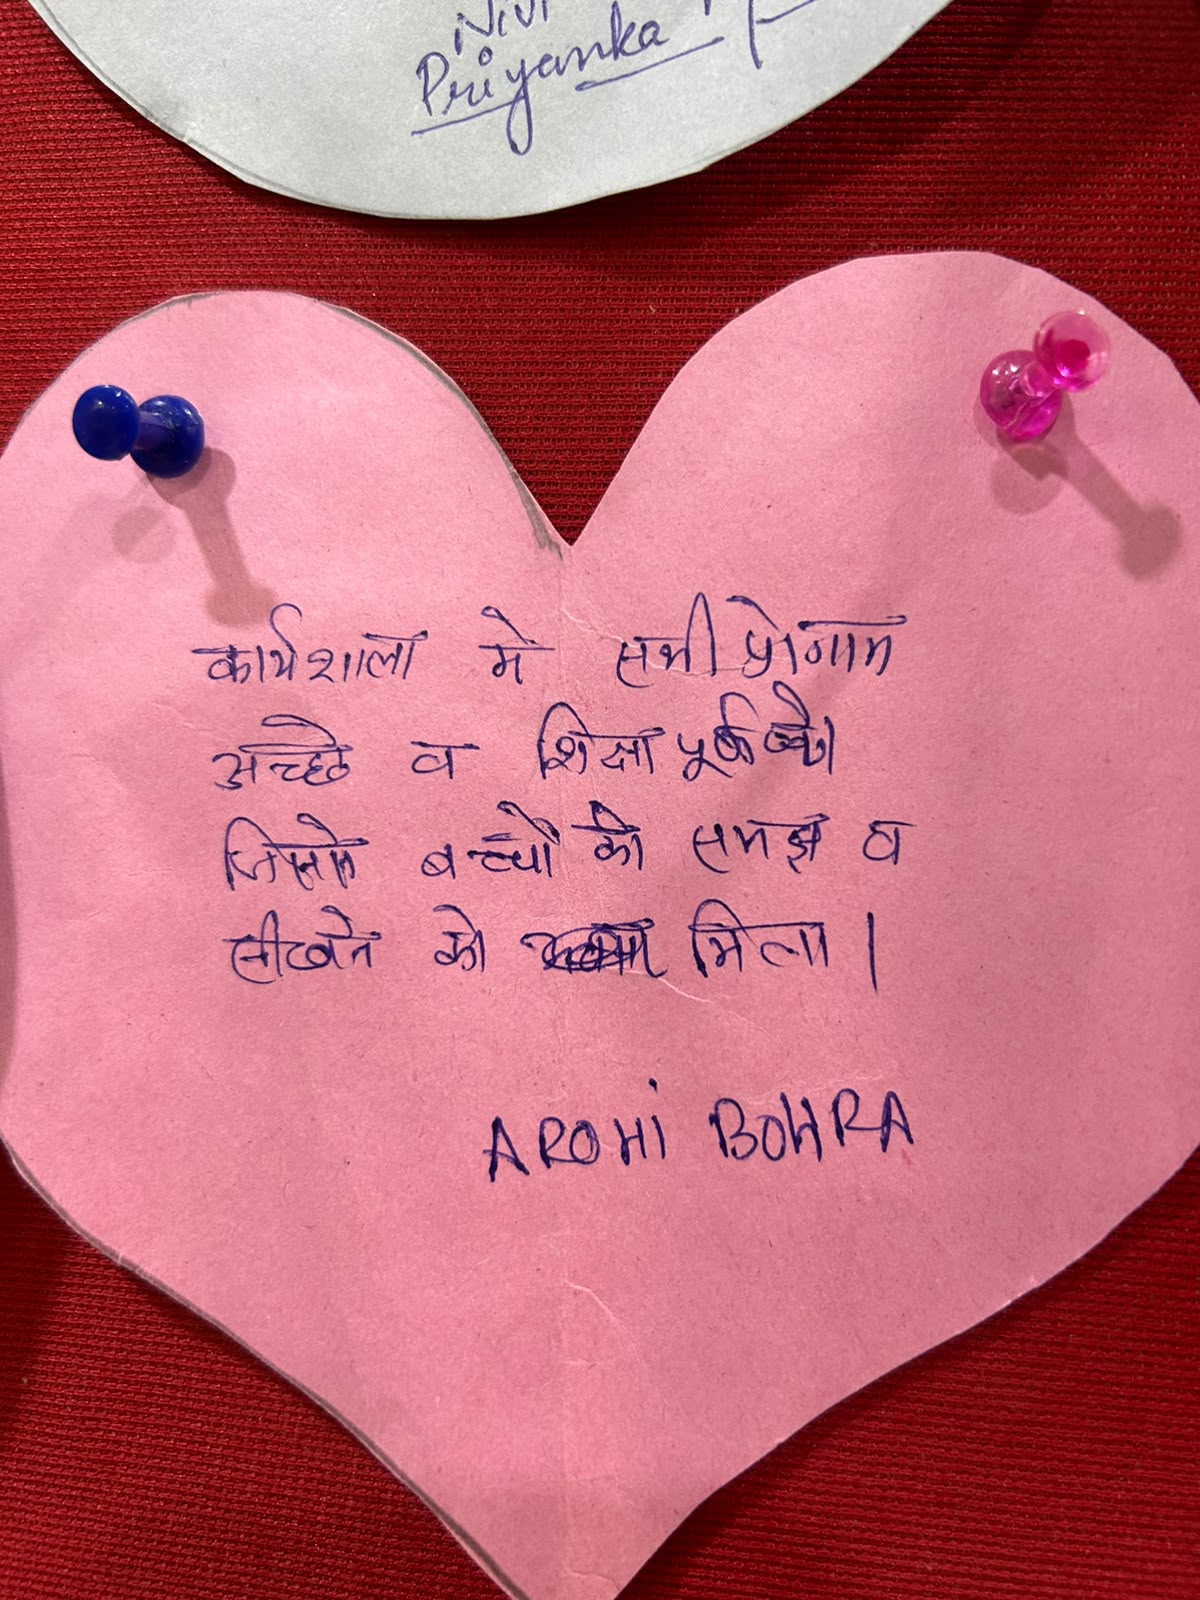 Priyanka
कार्यशाला मे सभी प्रोगाम
अच्छे व शिक्षा पूर्वक
बच्चों को समझ व
सीखने को मिला।
AROHI BOHRA